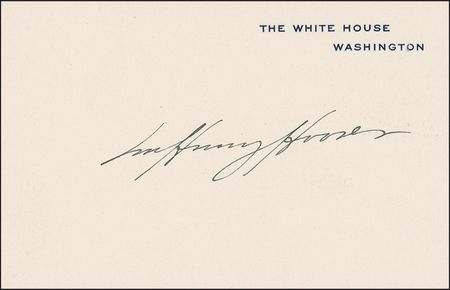 THE WHITE HOUSE
WASHINGTON
Lou Henry Hoover